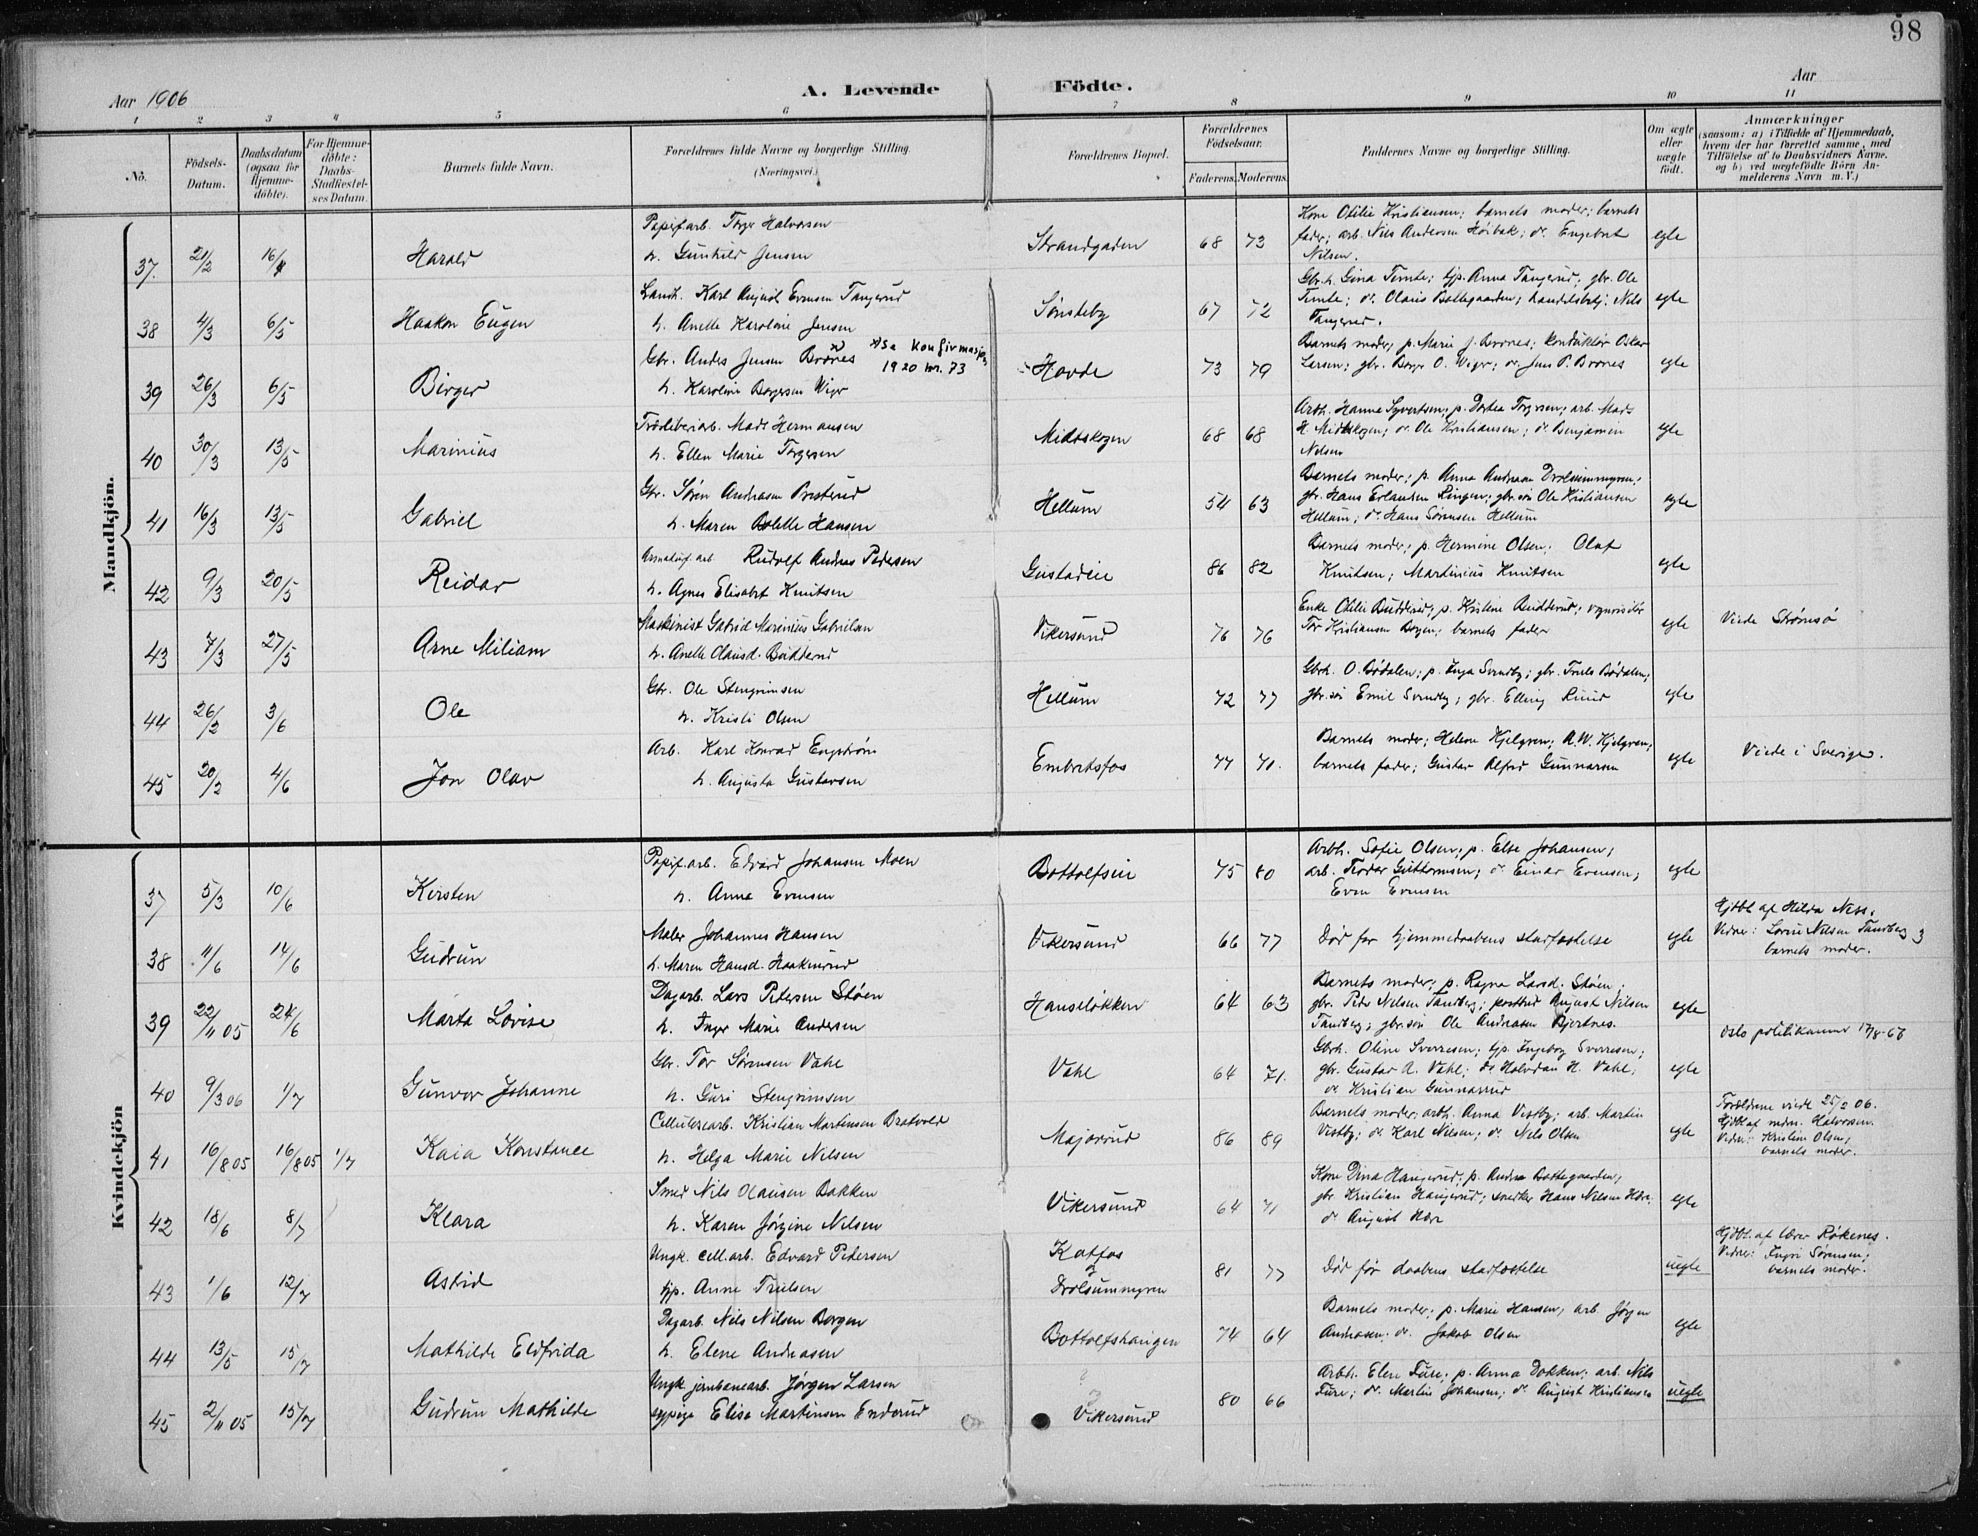 98
Aar 1906 A. Levende Födte. Aar
1 2 3 4 5 6 7 8 9 10 11
No.
Födsels-Datum.
Daabsdatum (ogsaa for Hjemmedöbte).
For Hjemmedöbte: Daabs-Stadfæstelses Datum.
Barnets fulde Navn.
Forældrenes fulde Navne og borgerlige Stilling. (Næringsvei.)
Forældrenes Bopæl.
Forældrenes Födselsaar. Faderens. Moderens.
Faddernes Navne og borgerlige Stilling.
Om ægte eller uægte födt.
Anmærkninger (saasom: a) i Tilfælde af Hjemmedaab, hvem der har forrettet samme, med Tilföielse af to Daabsvidners Navne. og b) ved uægtefödte Börn Anmelderens Navn m. V.)
Mandkjön.
37. 21/2 16/4 Harald
Papirfarb. Torger Halvorsen
h. Gunhild Jensen
Strandgaden 68 73
Kone Otilie Kristiansen; barnets moder; barnets
fader; arb. Nils Andersen Høibak; do Engebret
Nilsen.
egte
38 4/3 6/5 Haakon Eugen
Landh. Karl August Evensen Tangerud
h. Anette Karoline Jensen
Sønsteby 67 72
Gbr.h. Gina Timte; tjp. Anna Tangerud; gbr. Ole
Timte; do. Olaus Bottegaarden; handelsbetj. Nils
Tangerud.
egte
39 26/3 6/5 Birger
Gbr. Anders Jensen Braanes x) Se konfirmasjon
1920 nr. 73
h. Karoline Borgersen Wiger
Hovde 73 79
Barnets moder; p. Marie J. Braanes; konduktør Oskar
Larsen; gbr. Borger O. Wiger; do Jens P. Braanes
egte
40 30/3 13/5 Marinius
Træsliberiarb. Mads Hermansen
h. Ellen Marie Torgersen
Midtskogen 68 68
Arbh. Hanna Syvertsen; p. Dortea Torgersen; arb. Mads
H. Midtskogen; do. Ole Kristiansen; do. Benjamin
Nilsen
egte
41 16/3 13/5 Gabriel
Gbr. Søren Andreasen Prestrud
h. Maren Bolette Hansen
Hellum 54 63
Barnets moder; p. Anna Andreasen Drolsummyren;
gbr. Hans Erlandsen Ringen; gbr.søn Ole Kristiansen
Hellum; do. Hans Sørensen Hellum
egte
42 9/3 20/5 Reidar
arb Rudolf Andreas Pedersen
h. Agnes Elisabet Knutsen
86 82
Barnets moder; p. Hermine Olsen; Olaf
Knutsen; Martinius Knutsen
egte
43 7/3 27/5 Arne Miliam
Maskinist Gabriel Marinius Gabrielsen
h. Anette Olausd. Budderud
Vikersund 76 76
Enke Otilie Budderud; p. Kristine Budderud; vognvisitør
Tor Kristiansen Bogen; barnets fader
egte Viede Strømsø
44 26/2 3/6 Ole
Gbr. Ole Stengrimsen
h. Kristi Olsen
Hellum 72 77
Gbrh. O. Bødalen; p. Inga Svendby; gbr. Truls Bødalen;
gbr.søn Emil Svendby; gbr. Elling Ruud
egte
45 20/2 4/6 Jon Olav
Arb. Karl Konrad Engstrøm
h. Augusta Gustavsen
Embretsfos 77 71.
Barnets moder; Helene Kjelgren; A.W. Kjelgren;
barnets fader; Gustav Alfred Gunnarsen
egte Viede i Sverige.
Kvindekjön
37 5/3 10/6 Kirsten
Papirf.arb. Edvard Johansen Moen
h. Anna Evensen
Bottolfseie 75 80
Arbh. Sofie Olsen; p. Else Johansen;
arb. Teodor Guttormsen; do Einar Evensen;
Even Evensen
egte
38 11/6 14/6 Gudrun
Maler Johannes Hansen
h. Maren Hansd. Haakenrud
Vikersund 66 77
Død før hjemmedaabens stadfæstelse
egte
Hjdbt af Hilda Ness.
Vidner: Lovise Nilsen Tandberg &
barnets moder.
39 22/11 05 24/6 Marta Lovise
Dagarb. Lars Petersen Støen
h. Inger Marie Andersen
Hanseløkken 64 63
Barnets moder; p. Ragna Larsd. Støen;
gbr. Peder Nilsen Tandberg; postbud August Nilsen
Tandberg; gbr.søn Ole Andreasen Bjertnes.
egte
Oslo politikammer 17/8-67
40 9/3 06 1/7 Gunvor Johanne
Gbr. Tor Sørensen Vahl
h. Guri Stengrimsen
Vahl 64 71.
Gbrh. Oline Sverresen; tjp. Ingeborg Sverresen;
gbr. Gustav A. Vahl; do Halvdan H. Vahl;
do Kristian Gunnarrud
egte
41 16/8 05 16/8 05 1/7 Kaia Konstance
Cellulosearb. Kristian Martinsen Bratvold
h. Helga Marie Nilsen
Majorrud 86 89
Barnets moder; arbh. Anna Vestby; arb. Martin
Vestby; do. Karl Nilsen; do. Nils Olsen
egte
Forældrene viede 25/2 06.
Hjdbt af mdm. Halvorsen.
Vidner: Kristine Olsen;
barnets moder.
42 18/6 8/7 Klara
Smed Nils Olausen Bakken
h. Karen Jørgine Nilsen
Vikersund 64 71
Kone Dina Haugerud; p. Andrea Bottegaarden;
gbr. Kristian Haugerud; snedker Hans Nilsen Hære;
do August Hære
egte
43 1/6 12/7 Astrid
Ungk. cell.arb. Edvard Petersen
tjp. Anne Trulsen
Katfos
Drolsummyren
81 77
Død før daabens stadfæstelse
uegte
Hjdbt. af lærer Røkenes.
Vidner: Ingri Sørensen;
barnets moder.
44 13/5 15/7 Mathilde Eldfrida
Dagarb. Nils Nilsen Borgen
h. Elene Andreasen
Bottolfshaugen 74 64
Barnets moder; p. Marie Hansen; arb. Jørgen
Andreasen; do. Jakob Olsen
egte
45 2/11 05 15/7 Gudrun Mathilde
Ungk. jernbanearb. Jørgen Larsen
sypige Elise Martinsen Enderud
?
Vikersund
80 66
Arbh. Elen Fure; p. Anna Dokken; arb. Nils
Fure; do. Martin Johansen; do August Kristiansen
uegte